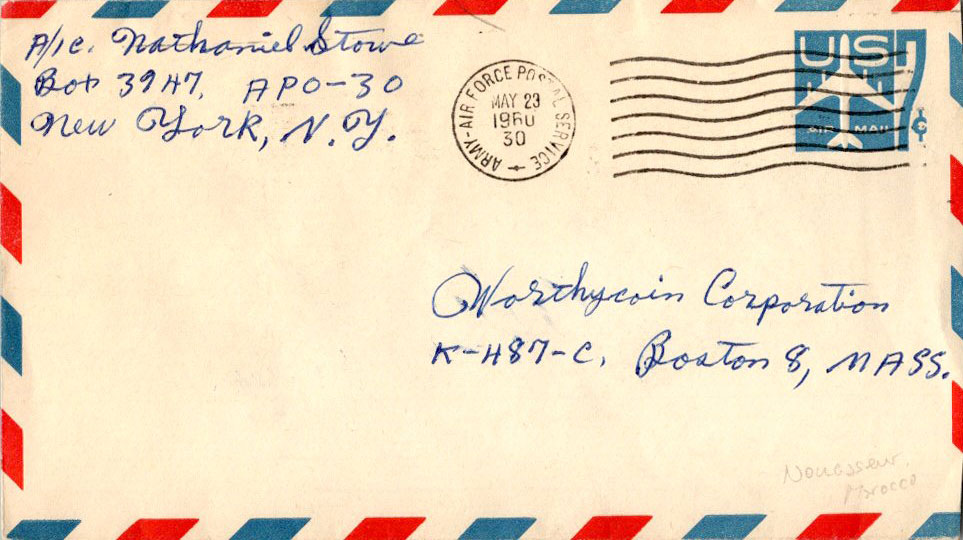 A/1c. Nathaniel Stowe
Box 3947, APO-30
New York, N.Y.
ARMY-AIR FORCE POSTAL SERVICE
MAY 23
1960
30
US
AIR MAIL
7¢
Worthycoin Corporation
K-487-C, Boston 8, MASS.
Nouasseur,
Morocco